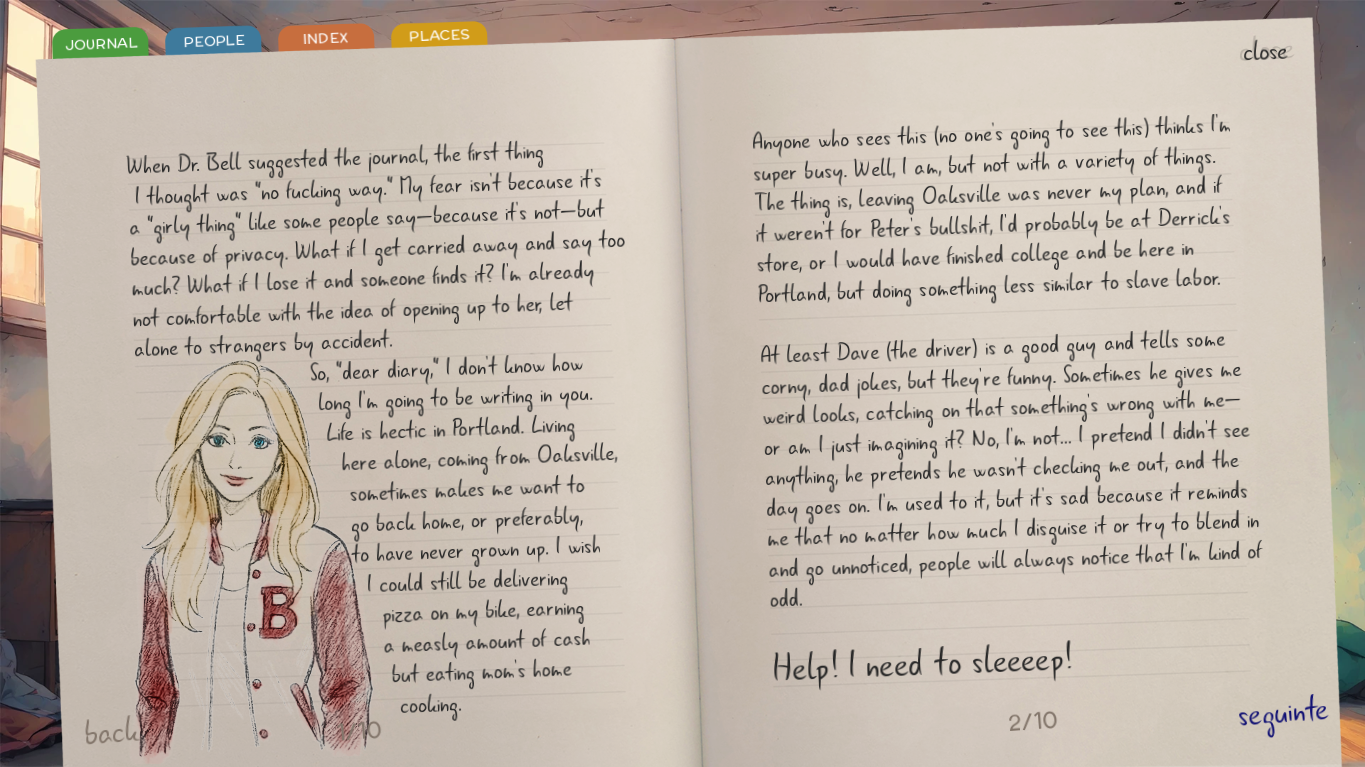 JOURNAL
PEOPLE
INDEX
PLACES
close
When Dr. Bell suggested the journal, the first thing
I thought was "no fucking way." My fear isn't because it's
a "girly thing" like some people say—because it's not—but
because of privacy. What if I get carried away and say too
much? What if I lose it and someone finds it? I'm already
not comfortable with the idea of opening up to her, let
alone to strangers by accident.
So, "dear diary," I don't know how
long I'm going to be writing in you.
Life is hectic in Portland. Living
here alone, coming from Oaksville,
sometimes makes me want to
go back home, or preferably,
to have never grown up. I wish
I could still be delivering
pizza on my bike, earning
a measly amount of cash
but eating mom's home
cooking.
B
back
/10
Anyone who sees this (no one's going to see this) thinks I'm
super busy. Well, I am, but not with a variety of things.
The thing is, leaving Oaksville was never my plan, and if
it weren't for Peter's bullshit, I'd probably be at Derrick's
store, or I would have finished college and be here in
Portland, but doing something less similar to slave labor.
At least Dave (the driver) is a good guy and tells some
corny, dad jokes, but they're funny. Sometimes he gives me
weird looks, catching on that something's wrong with me—
or am I just imagining it? No, I'm not... I pretend I didn't see
anything, he pretends he wasn't checking me out, and the
day goes on. I'm used to it, but it's sad because it reminds
me that no matter how much I disguise it or try to blend in
and go unnoticed, people will always notice that I'm kind of
odd.
Help! I need to sleeeep!
2/10
seguinte